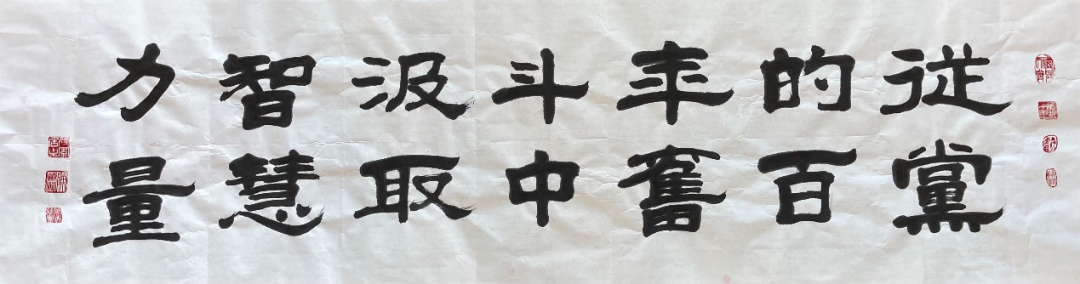 從黨
的百
年奮
斗中
汲取
智慧
力量